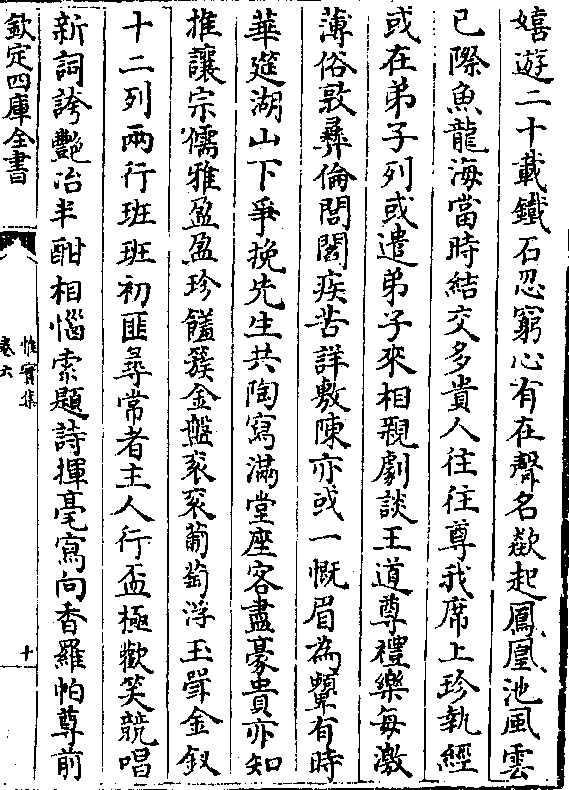 嬉遊二十載鐵石忍窮心有在聲名欻起鳳凰池風雲
已際魚龍海當時結交多貴人往往尊我席上珍執經
或在弟子列或遣弟子來相親劇談王道尊禮樂每激
薄俗敦彝倫閭閻疾苦詳敷陳亦或一慨眉為顰有時
華筵湖山下爭挽先生共陶寫滿堂座客盡豪貴亦知
推讓宗儒雅盈盈珍饈簇金盤衮衮葡萄浮玉斝金釵
十二列兩行班班初匪尋常者主人行盃極歡笑競唱
新詞誇艷冶半酣相惱索題詩揮毫寫向香羅帕尊前
欽定四庫全書
惟實集
卷六
十